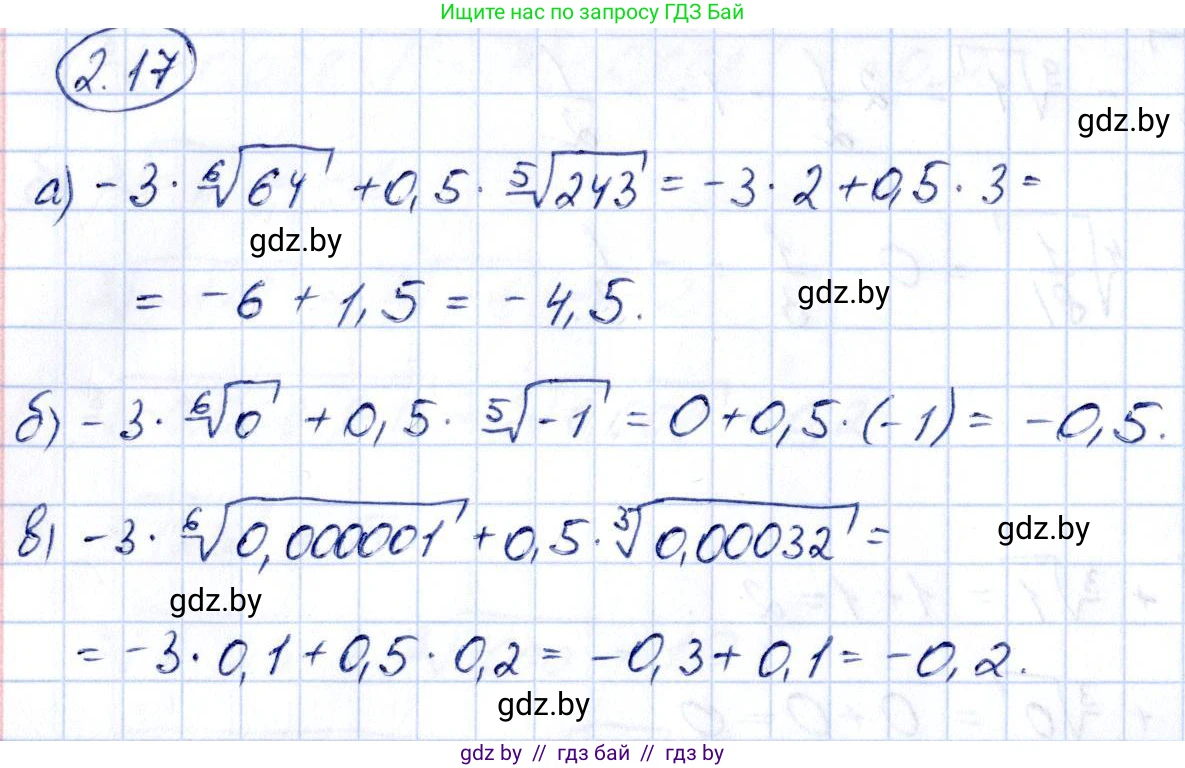 Ищите нас по запросу ГДЗ Бай
2.17
gdz.by
а) -3 · ⁶√64 + 0,5 · ⁵√243 = -3 · 2 + 0,5 · 3 =
gdz.by
= -6 + 1,5 = -4,5.
gdz.by
б) -3 · ⁶√0 + 0,5 · ⁵√-1 = 0 + 0,5 · (-1) = -0,5.
в) -3 · ⁶√0,000001 + 0,5 · ³√0,00032 =
gdz.by
gdz.by
= -3 · 0,1 + 0,5 · 0,2 = -0,3 + 0,1 = -0,2.
gdz.by
gdz by // гдз бай // гдз by